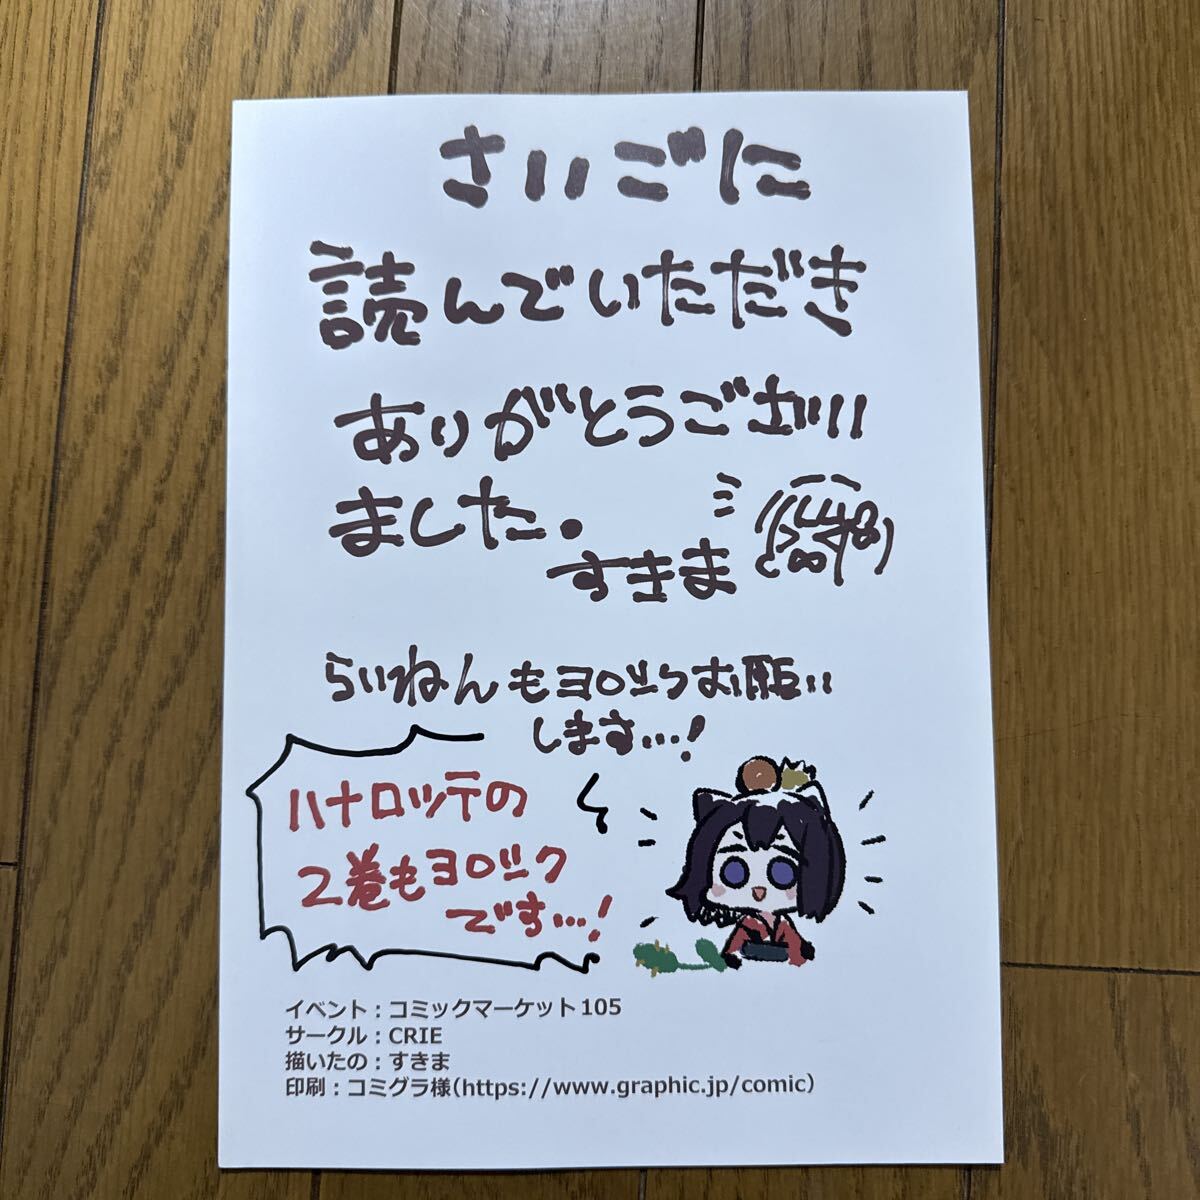 さいごに
読んでいただき
ありがとうござい
ました。
すきま
らいねんもヨロシクお願い
します…!
ハナロッテの
2巻もヨロシク
です…!
イベント：コミックマーケット105
サークル：CRIE
描いたの：すきま
印刷：コミグラ様(https://www.graphic.jp/comic)